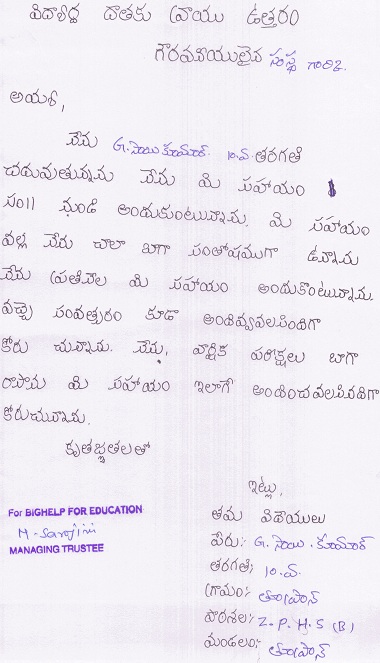 విద్యార్థి దాతకు వ్రాయు ఉత్తరం
గౌరవనీయులైన సంస్థ గారికి.
అయ్యా,
నేను G. సాయి కుమార్. 10.వ. తరగతి
చదువుతున్నాను నేను మీ సహాయం 1
సం|| నుండి అందుకుంటున్నాను. మీ సహాయం
వల్ల నేను చాలా బాగా సంతోషముగా ఉన్నాను
నేను ప్రతినెల మీ సహాయం అందుకొంటున్నాను.
వచ్చే సంవత్సరం కూడా అందివ్వవలసిందిగా
కోరు చున్నాను. నేను, వార్షిక పరీక్షలు బాగా
రాసాను మీ సహాయం ఇలాగే అందించవలసినదిగా
కోరుచున్నాను.
కృతజ్ఞతలతో
ఇట్లు,
తమ విదేయులు
పేరు:- G. సాయి. కుమార్
తరగతి; 10.వ.
గ్రామం:
పాఠశాల: Z.P.H.S (B)
మండలం:
For BIGHELP FOR EDUCATION
M. Sarojini
MANAGING TRUSTEE